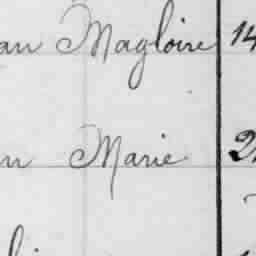 an Magloire 14
n Marie 2